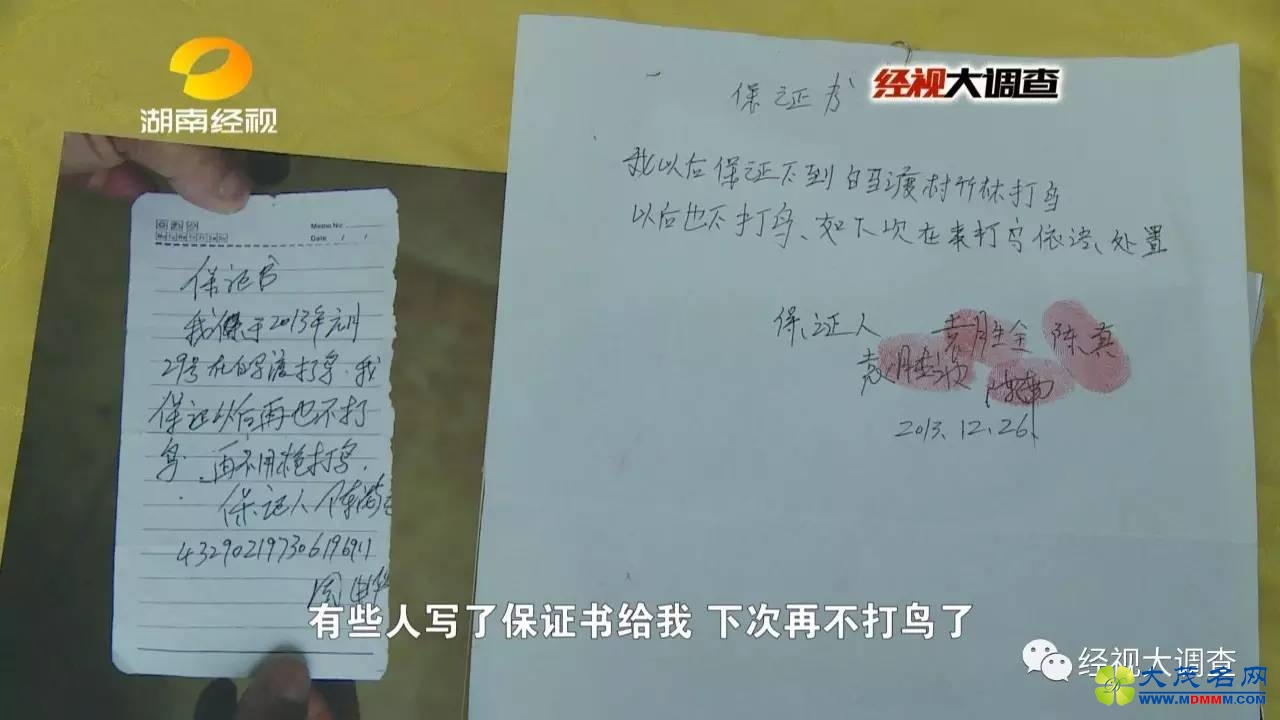 湖南经视
经视大调查
Memo No.
Date / /
Mo Tu We Th Fr Sa Su
保证书
于2013年元月
29号在白 渡打鸟.我
保证以后再也不打
鸟.再不用枪打鸟.
保证人 陈
周
保证书
我以后保证不到白 渡村竹林打鸟
以后也不打鸟、如下次在来打鸟依法处置
保证人 袁胜金 陈真
袁胜
2013.12.26.
有些人写了保证书给我 下次再不打鸟了
经视大调查
大茂名网
WWW.MDMMM.COM